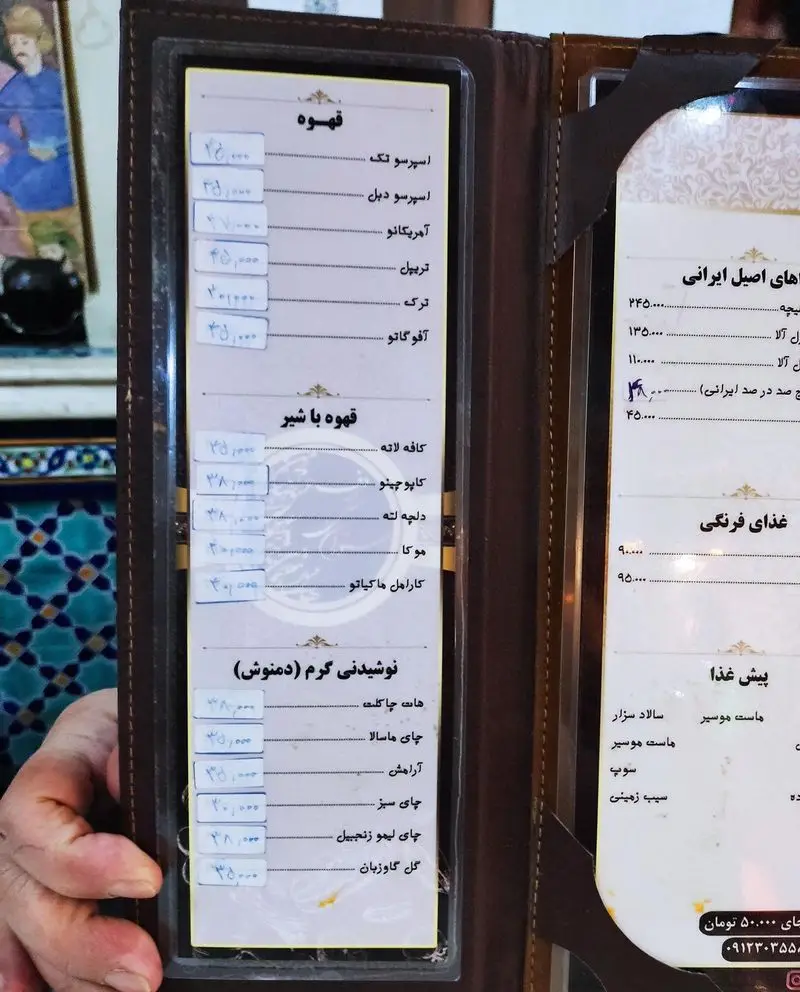 قهوه
اسپرسو تک
اسپرسو دبل ۳۵,۰۰۰
آمریکانو ۳۷,۰۰۰
تریپل ۴۵,۰۰۰
ترک ۳۰,۰۰۰
آفوگاتو ۴۵,۰۰۰
قهوه با شیر
کافه لاته ۳۵,۰۰۰
کاپوچینو ۳۸,۰۰۰
دلچه لته ۳۸,۰۰۰
موکا ۴۰,۰۰۰
کارامل ماکیاتو ۴۰,۰۰۰
نوشیدنی گرم (دمنوش)
هات چاکلت ۳۸,۰۰۰
چای ماسالا ۳۵,۰۰۰
آرامش ۳۵,۰۰۰
چای سبز ۳۰,۰۰۰
چای لیمو زنجبیل ۳۸,۰۰۰
گل گاوزبان ۳۵,۰۰۰
اصیل ایرانی
۲۴۵.۰۰۰
آلا ۱۳۵.۰۰۰
آلا ۱۱۰.۰۰۰
صد در صد ایرانی)
۴۵.۰۰۰
غذای فرنگی
۹۰.۰۰۰
۹۵.۰۰۰
پیش غذا
ماست موسیر سالاد سزار
ماست موسیر
سوپ
سیب زمینی
۵۰.۰۰۰ تومان
۰۹۱۲۳۰۳۵۵۸